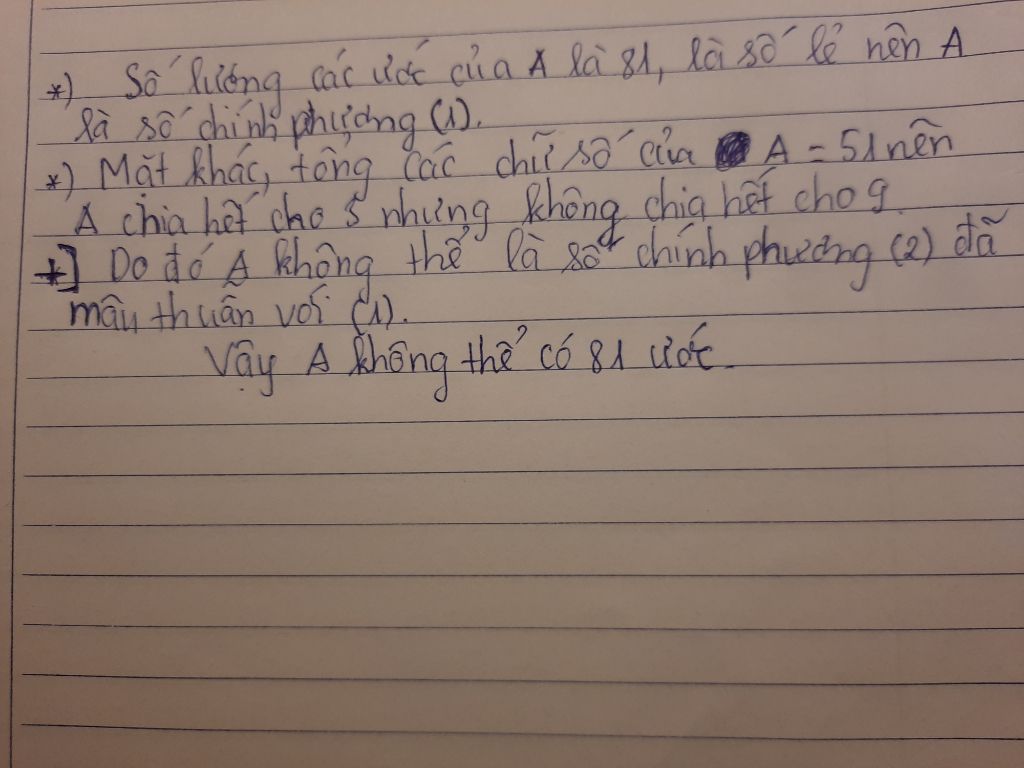 *) Số lướng các ước của A là 81, là số lẻ nên A
là số chính phương (1).
*) Mặt khác, tổng các chữ số của A = 51 nên
A chia hết cho 5 nhưng không chia hết cho 9.
*] Do đó A không thể là số chính phương (2) đã
mâu thuẫn với (1).
Vậy A không thể có 81 ước.